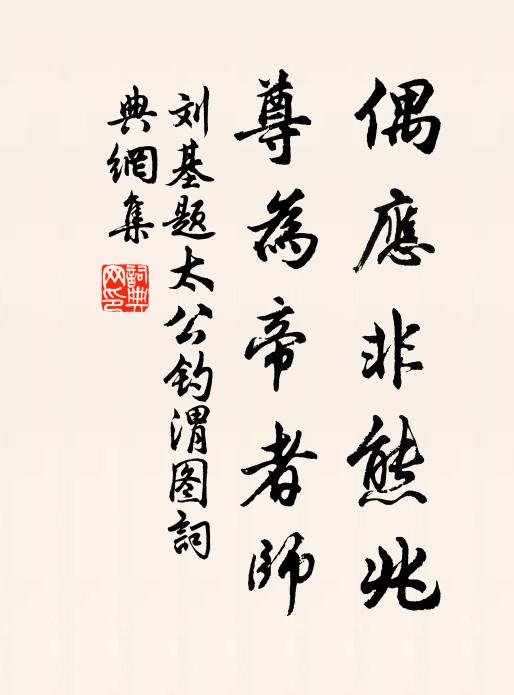 偶應非熊兆
尊為帝者師
刘基题太公钓渭图詞
典網集
詞典網印